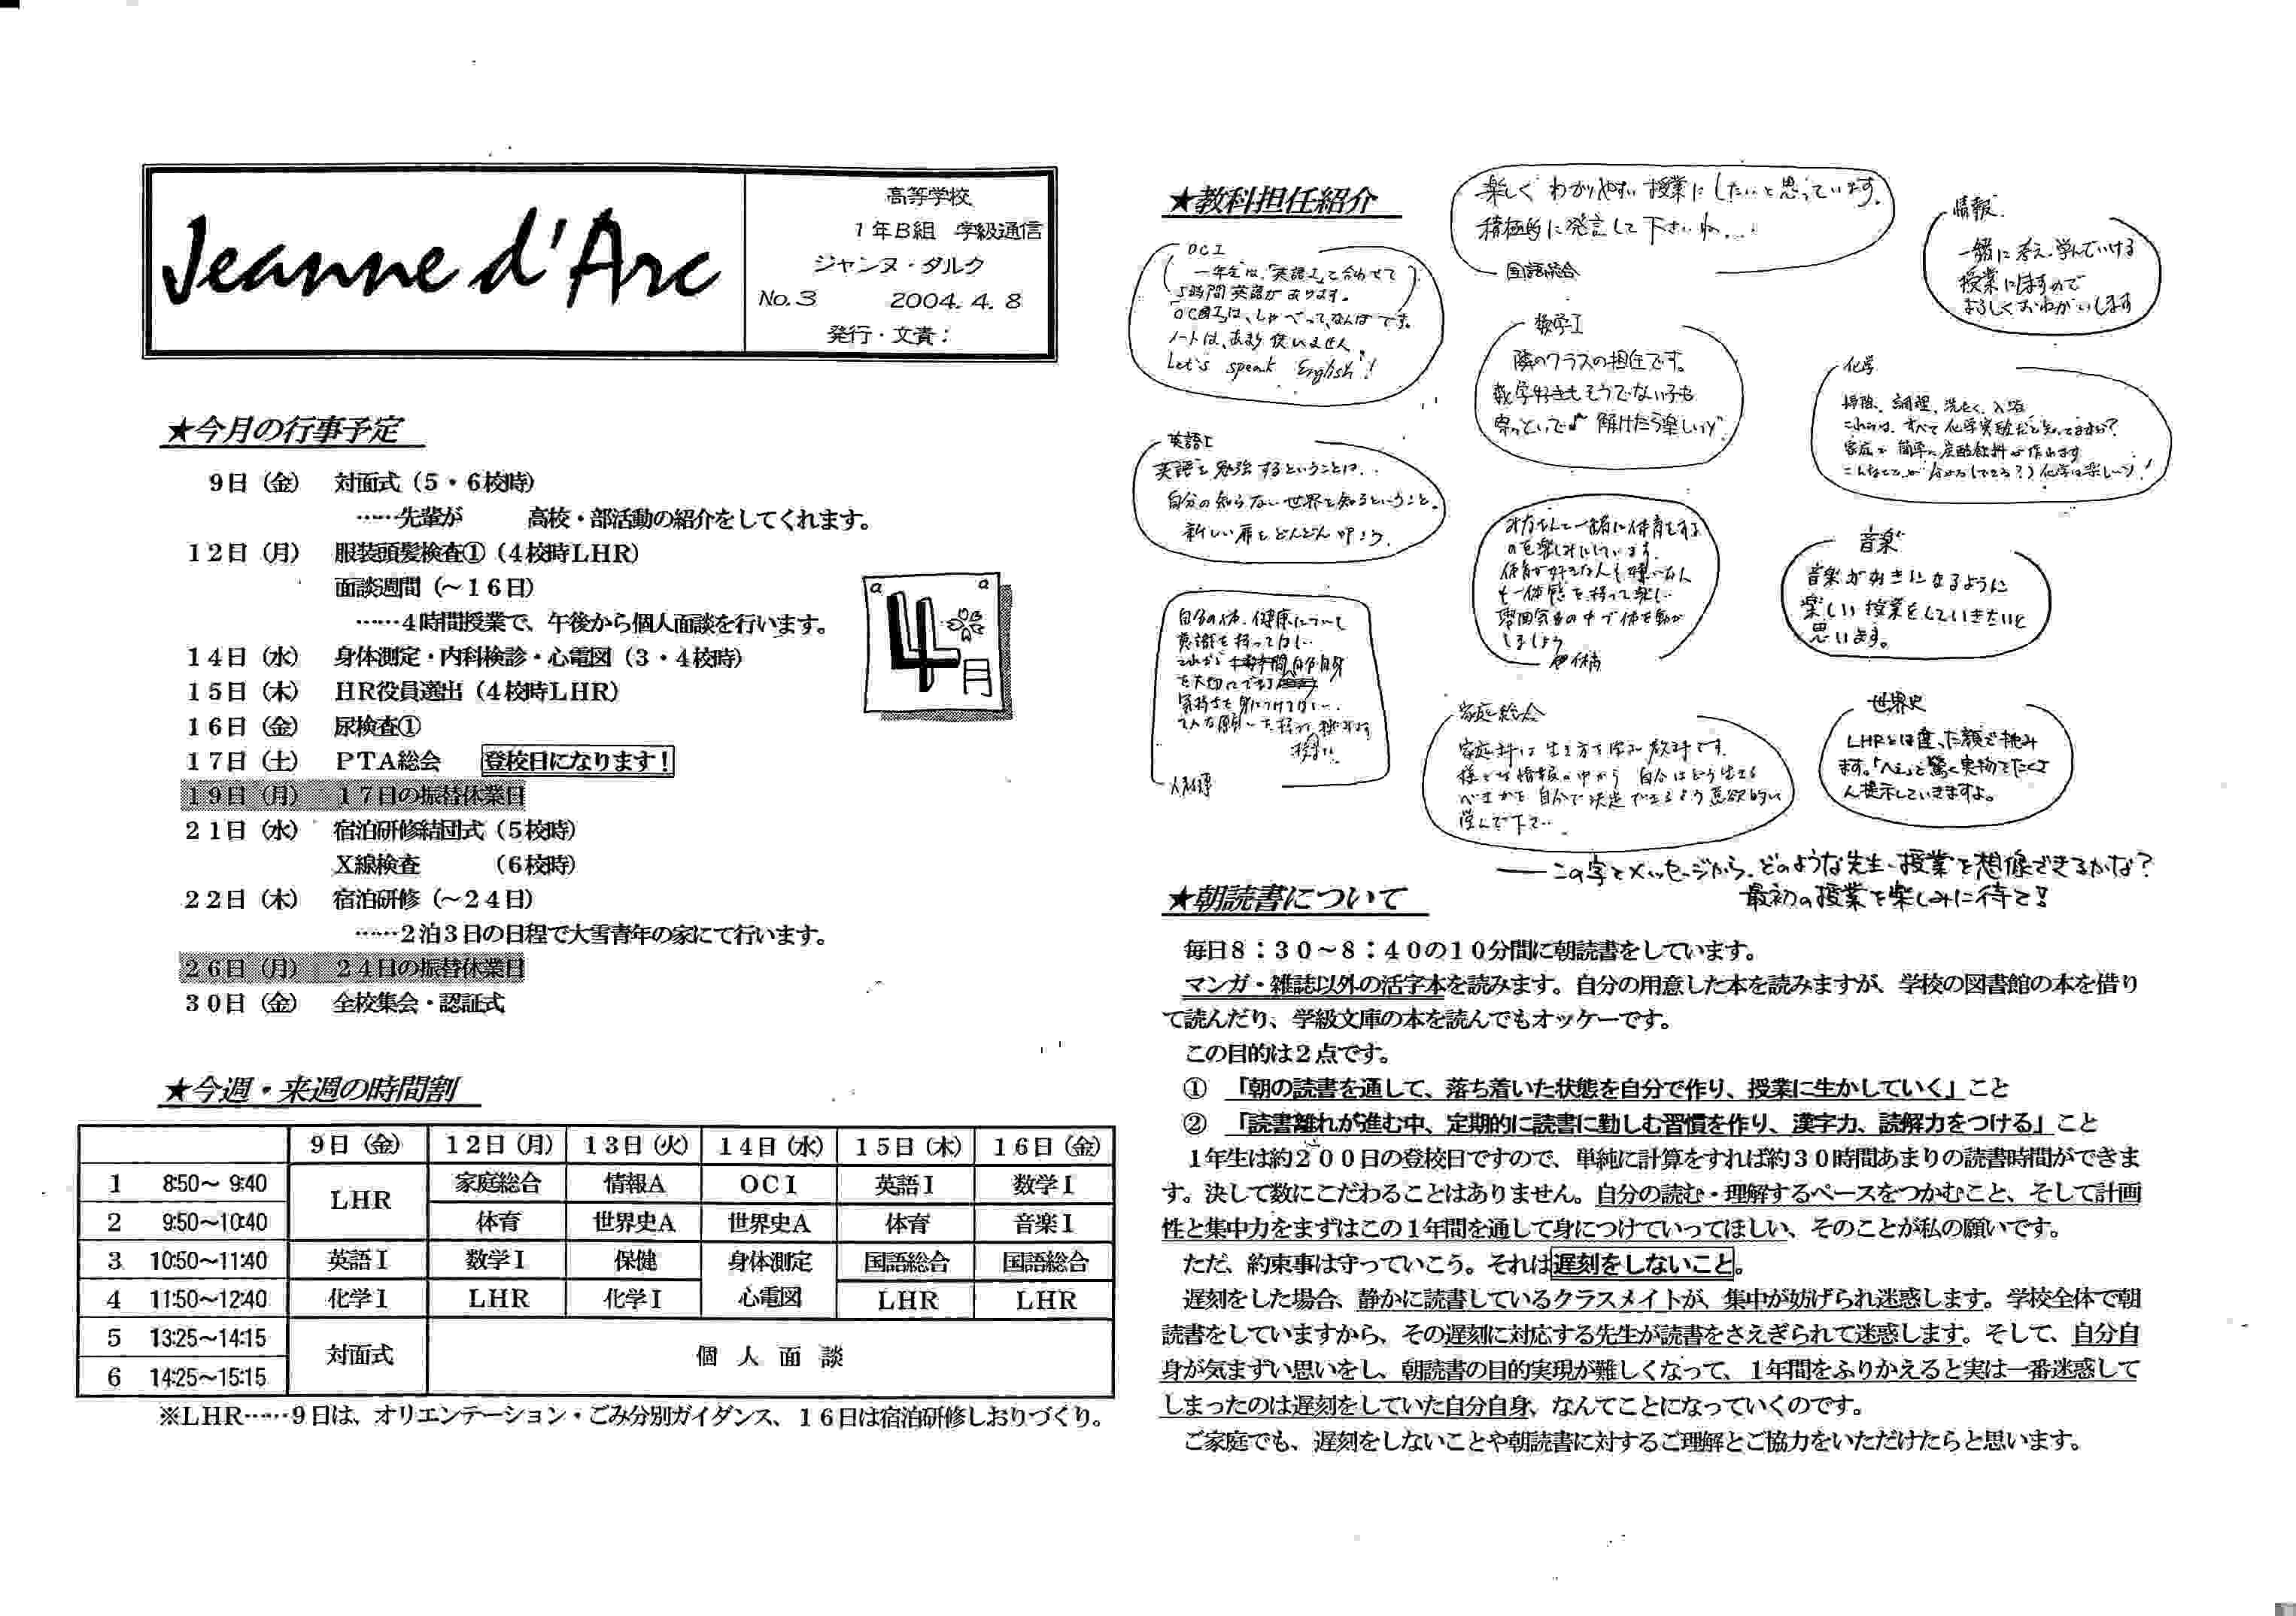 Jeanne d'Arc
高等学校
１年Ｂ組　学級通信
ジャンヌ・ダルク
No.３　２００４．４．８
発行・文責：
★今月の行事予定
９日（金）　対面式（５・６校時）
……先輩が　　　高校・部活動の紹介をしてくれます。
１２日（月）　服装頭髪検査①（４校時ＬＨＲ）
面談週間（～１６日）
……４時間授業で、午後から個人面談を行います。
１４日（水）　身体測定・内科検診・心電図（３・４校時）
１５日（木）　ＨＲ役員選出（４校時ＬＨＲ）
１６日（金）　尿検査①
１７日（土）　ＰＴＡ総会　登校日になります！
１９日（月）　１７日の振替休業日
２１日（水）　宿泊研修結団式（５校時）
Ｘ線検査　　　（６校時）
２２日（木）　宿泊研修（～２４日）
……２泊３日の日程で大雪青年の家にて行います。
２６日（月）　２４日の振替休業日
３０日（金）　全校集会・認証式
a a
４月
★今週・来週の時間割
９日（金）　１２日（月）　１３日（火）　１４日（水）　１５日（木）　１６日（金）
1　8:50～ 9:40　ＬＨＲ　家庭総合　情報Ａ　ＯＣⅠ　英語Ⅰ　数学Ⅰ
2　9:50～10:40　体育　世界史Ａ　世界史Ａ　体育　音楽Ⅰ
3　10:50～11:40　英語Ⅰ　数学Ⅰ　保健　身体測定　国語総合　国語総合
4　11:50～12:40　化学Ⅰ　ＬＨＲ　化学Ⅰ　心電図　ＬＨＲ　ＬＨＲ
5　13:25～14:15　対面式　個　人　面　談
6　14:25～15:15
※ＬＨＲ……９日は、オリエンテーション・ごみ分別ガイダンス、１６日は宿泊研修しおりづくり。
★教科担任紹介
楽しく わかりやすい 授業に したいと 思っています。
積極的に発言して下さいね…
国語総合
情報
一緒に考え、学んでいける
授業にしますので
よろしくおねがいします
OCI
一年生は、「英語Ⅰ」と合わせて
5時間 英語が あります。
「OCⅠ」は、しゃべって、なんぼです。
ノートは、あまり使いません
Let's speak English!!
数学Ⅰ
隣のクラスの担任です。
数学好きもそうでない子も
寄っといで♪ 解けたら楽しいゾ
化学
掃除、調理、洗たく、入浴
これらは、すべて 化学実験だと知ってますか？
家庭で 簡単に 炭酸飲料が 作れます
化学は楽しーゾ！
英語Ⅰ
英語を 勉強するということは、、
自分の 知らない 世界を 知るということ。
新しい 扉を どんどん 叩こう。
を楽しみにしています。
体育が好きな人も嫌いな人
雰囲気の中で体を動か
しましょう
体育
音楽
音楽が好きになるように
楽しい授業をしていきたいと
思います。
自分の体、健康について
意識を持ってほしい
家庭総合
家庭科は 生き方を学ぶ 教科です。
様々な情報の中から 自分はどう生きる
べきかを 自分で決定できるよう 意欲的に
学んで下さい。
世界史
LHRとは違った顔で挑み
ます。「へぇ」と驚く実物をたくさ
ん提示していきますよ。
――この字とメッセージから、どのような先生・授業を想像できるかな？
最初の授業を楽しみに待て！
★朝読書について
毎日８：３０～８：４０の１０分間に朝読書をしています。
マンガ・雑誌以外の活字本を読みます。自分の用意した本を読みますが、学校の図書館の本を借り
て読んだり、学級文庫の本を読んでもオッケーです。
この目的は２点です。
①　「朝の読書を通して、落ち着いた状態を自分で作り、授業に生かしていく」こと
②　「読書離れが進む中、定期的に読書に勤しむ習慣を作り、漢字力、読解力をつける」こと
１年生は約２００日の登校日ですので、単純に計算をすれば約３０時間あまりの読書時間ができま
す。決して数にこだわることはありません。自分の読む・理解するペースをつかむこと、そして計画
性と集中力をまずはこの１年間を通して身につけていってほしい、そのことが私の願いです。
ただ、約束事は守っていこう。それは遅刻をしないこと。
遅刻をした場合、静かに読書しているクラスメイトが、集中が妨げられ迷惑します。学校全体で朝
読書をしていますから、その遅刻に対応する先生が読書をさえぎられて迷惑します。そして、自分自
身が気まずい思いをし、朝読書の目的実現が難しくなって、１年間をふりかえると実は一番迷惑して
しまったのは遅刻をしていた自分自身、なんてことになっていくのです。
ご家庭でも、遅刻をしないことや朝読書に対するご理解とご協力をいただけたらと思います。